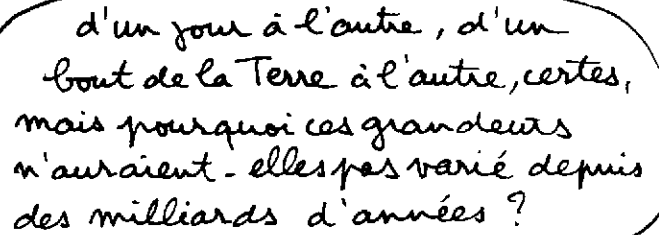 d'un jour à l'autre, d'un
bout de la Terre à l'autre, certes,
mais pourquoi ces grandeurs
n'auraient-elles pas varié depuis
des milliards d'années ?